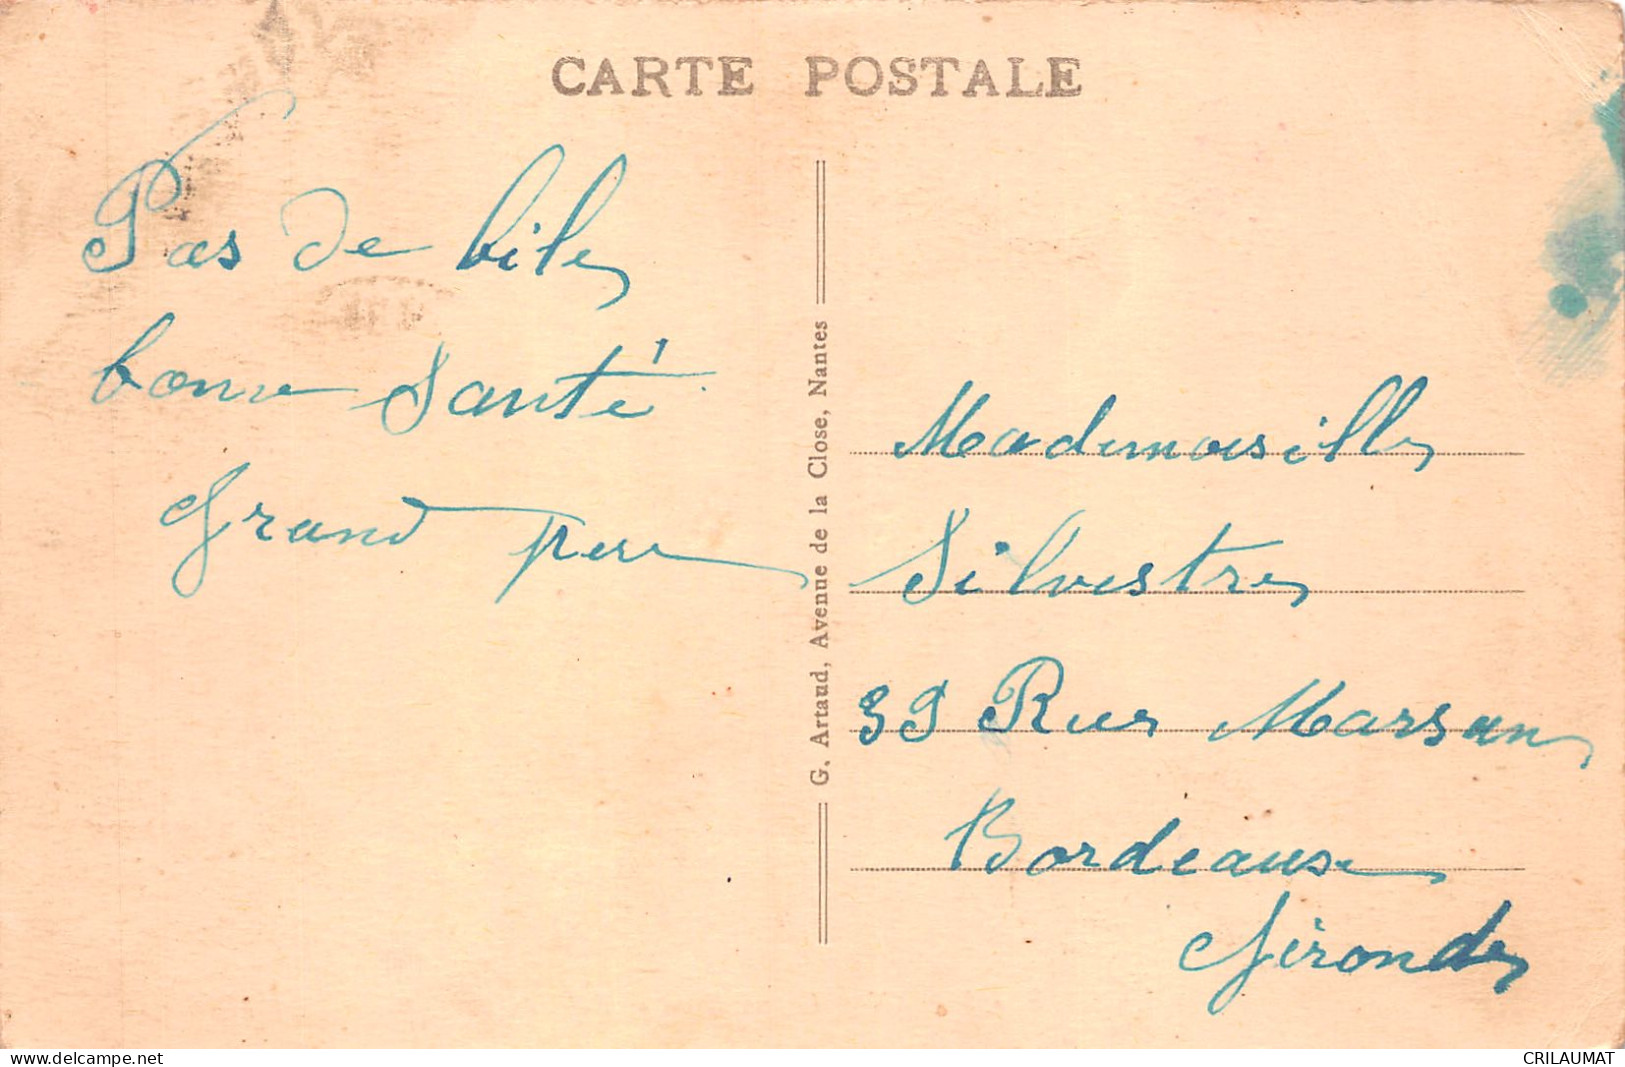 CARTE POSTALE
Pas de bile
bonne Santé
Grand pere
G. Artaud, Avenue de la Close, Nantes
Mademoiselle
Silvestre
39 Rue Marsan
Bordeaux
Gironde
delcampe.net
CRILAUMAT